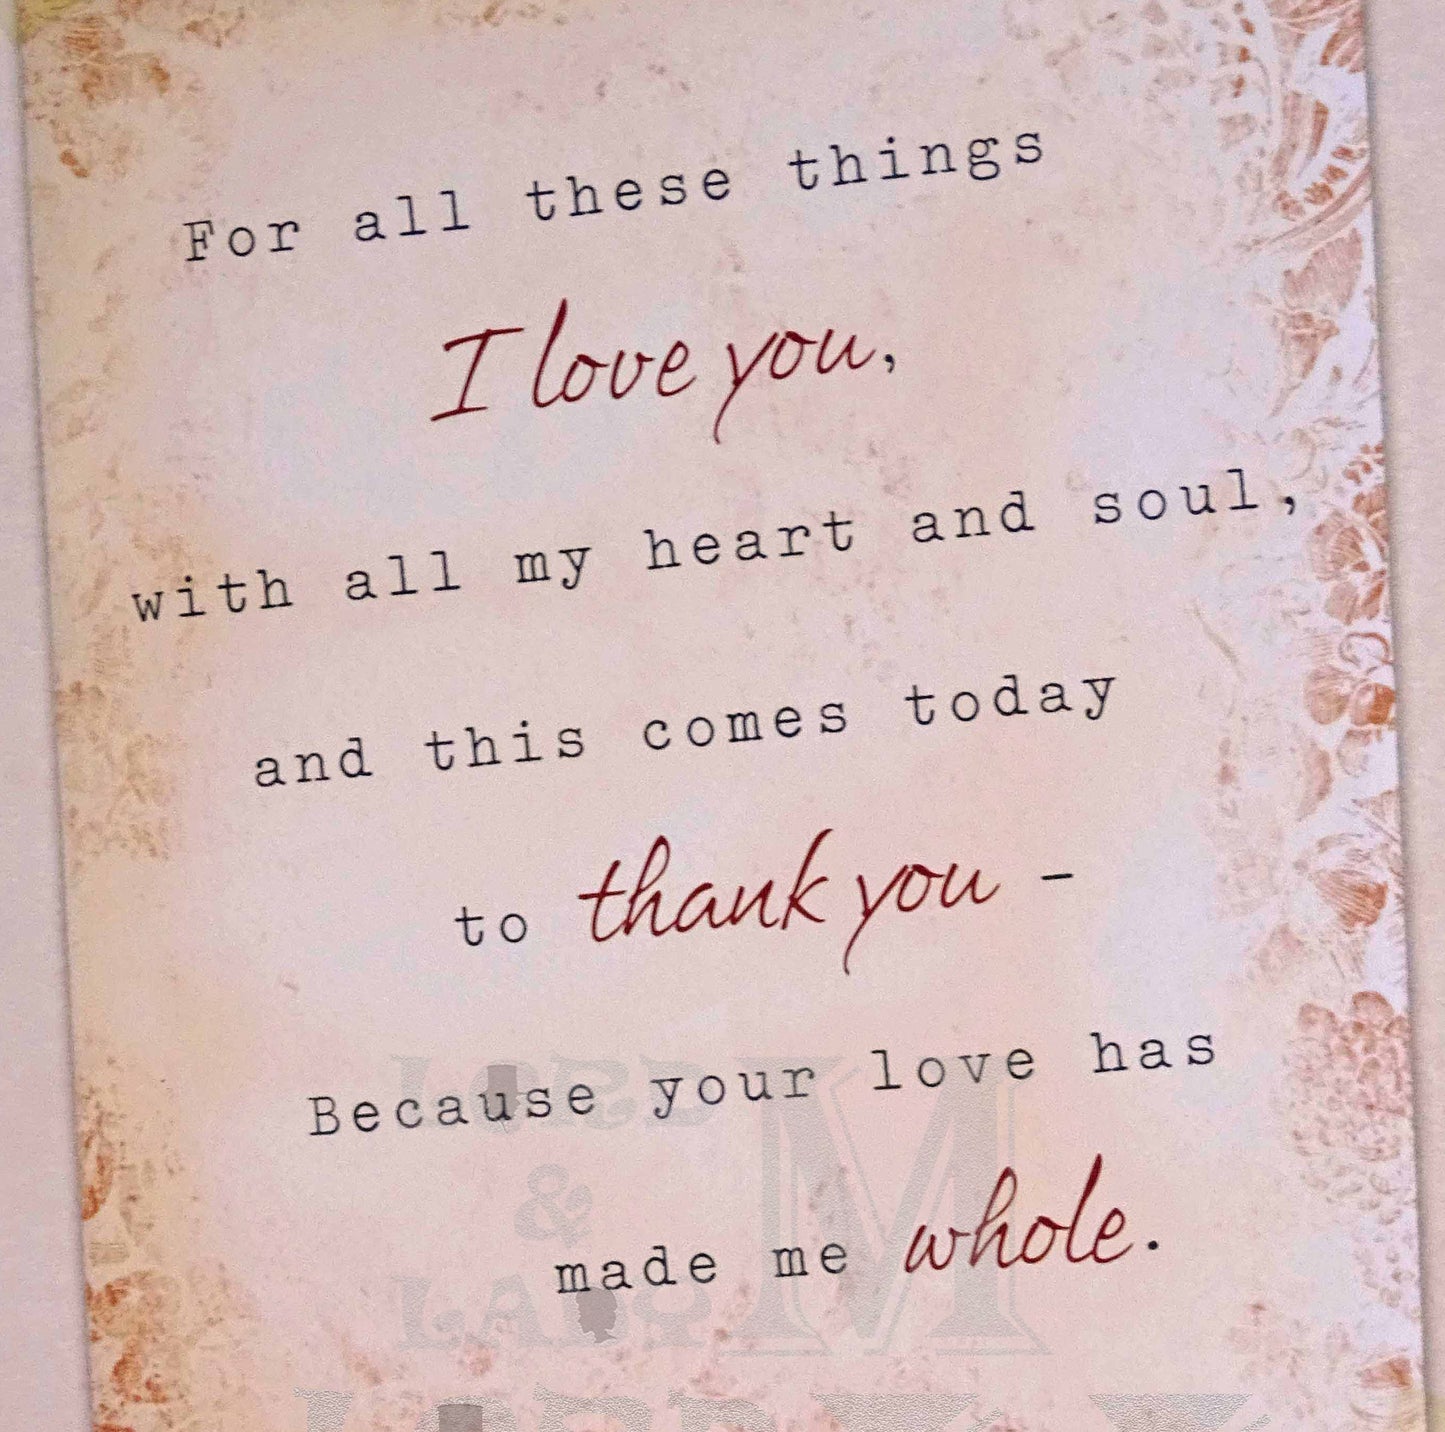 For all these things
I love you,
with all my heart and soul,
and this comes today
to thank you -
Because your love has
made me whole.
LORD
&
LADY
M
LORD